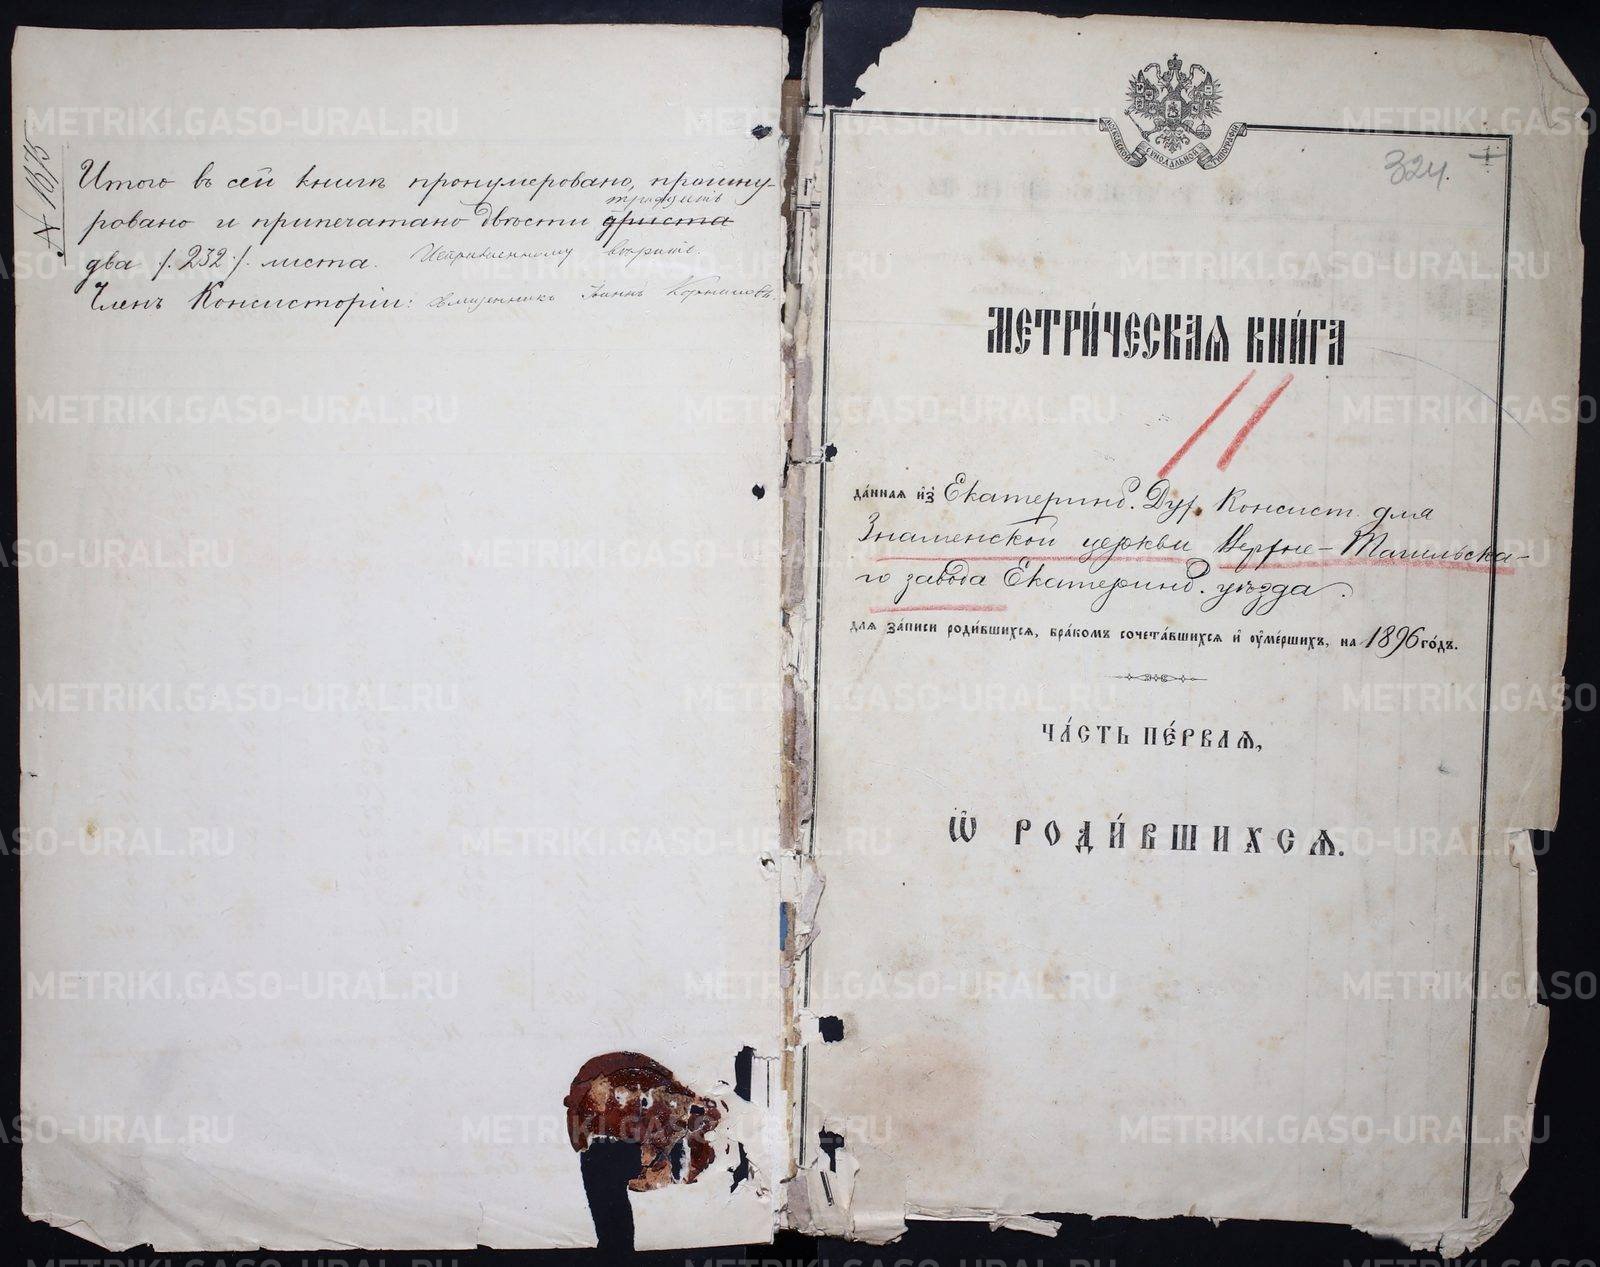 № 1675
Итого въ сей книгѣ пронумеровано, прошну-
ровано и припечатано двѣсти триста
тридцать
два /. 232 /. листа. Исправленному вѣрить.
Членъ Консисторіи: священникъ Іоаннъ
МОСКОВСКОЙ СѴНОДАЛЬНОЙ ТИПОГРАФІИ
324.
МЕТРИ́ЧЕСКАЯ КНИ́ГА
11
да́нная из̾ Екатеринб. Дух. Консист. для
Знаменской церкви Верхне-Тагильска-
го завода Екатеринб. уѣзда.
для за́писи роди́вшихся, бра́комъ сочета́вшихся и оуме́ршихъ, на 1896 го́дъ.
ЧА́СТЬ ПЕ́РВАЯ,
Ѽ РОДИ́ВШИХСЯ.
METRIKI.GASO-URAL.RU